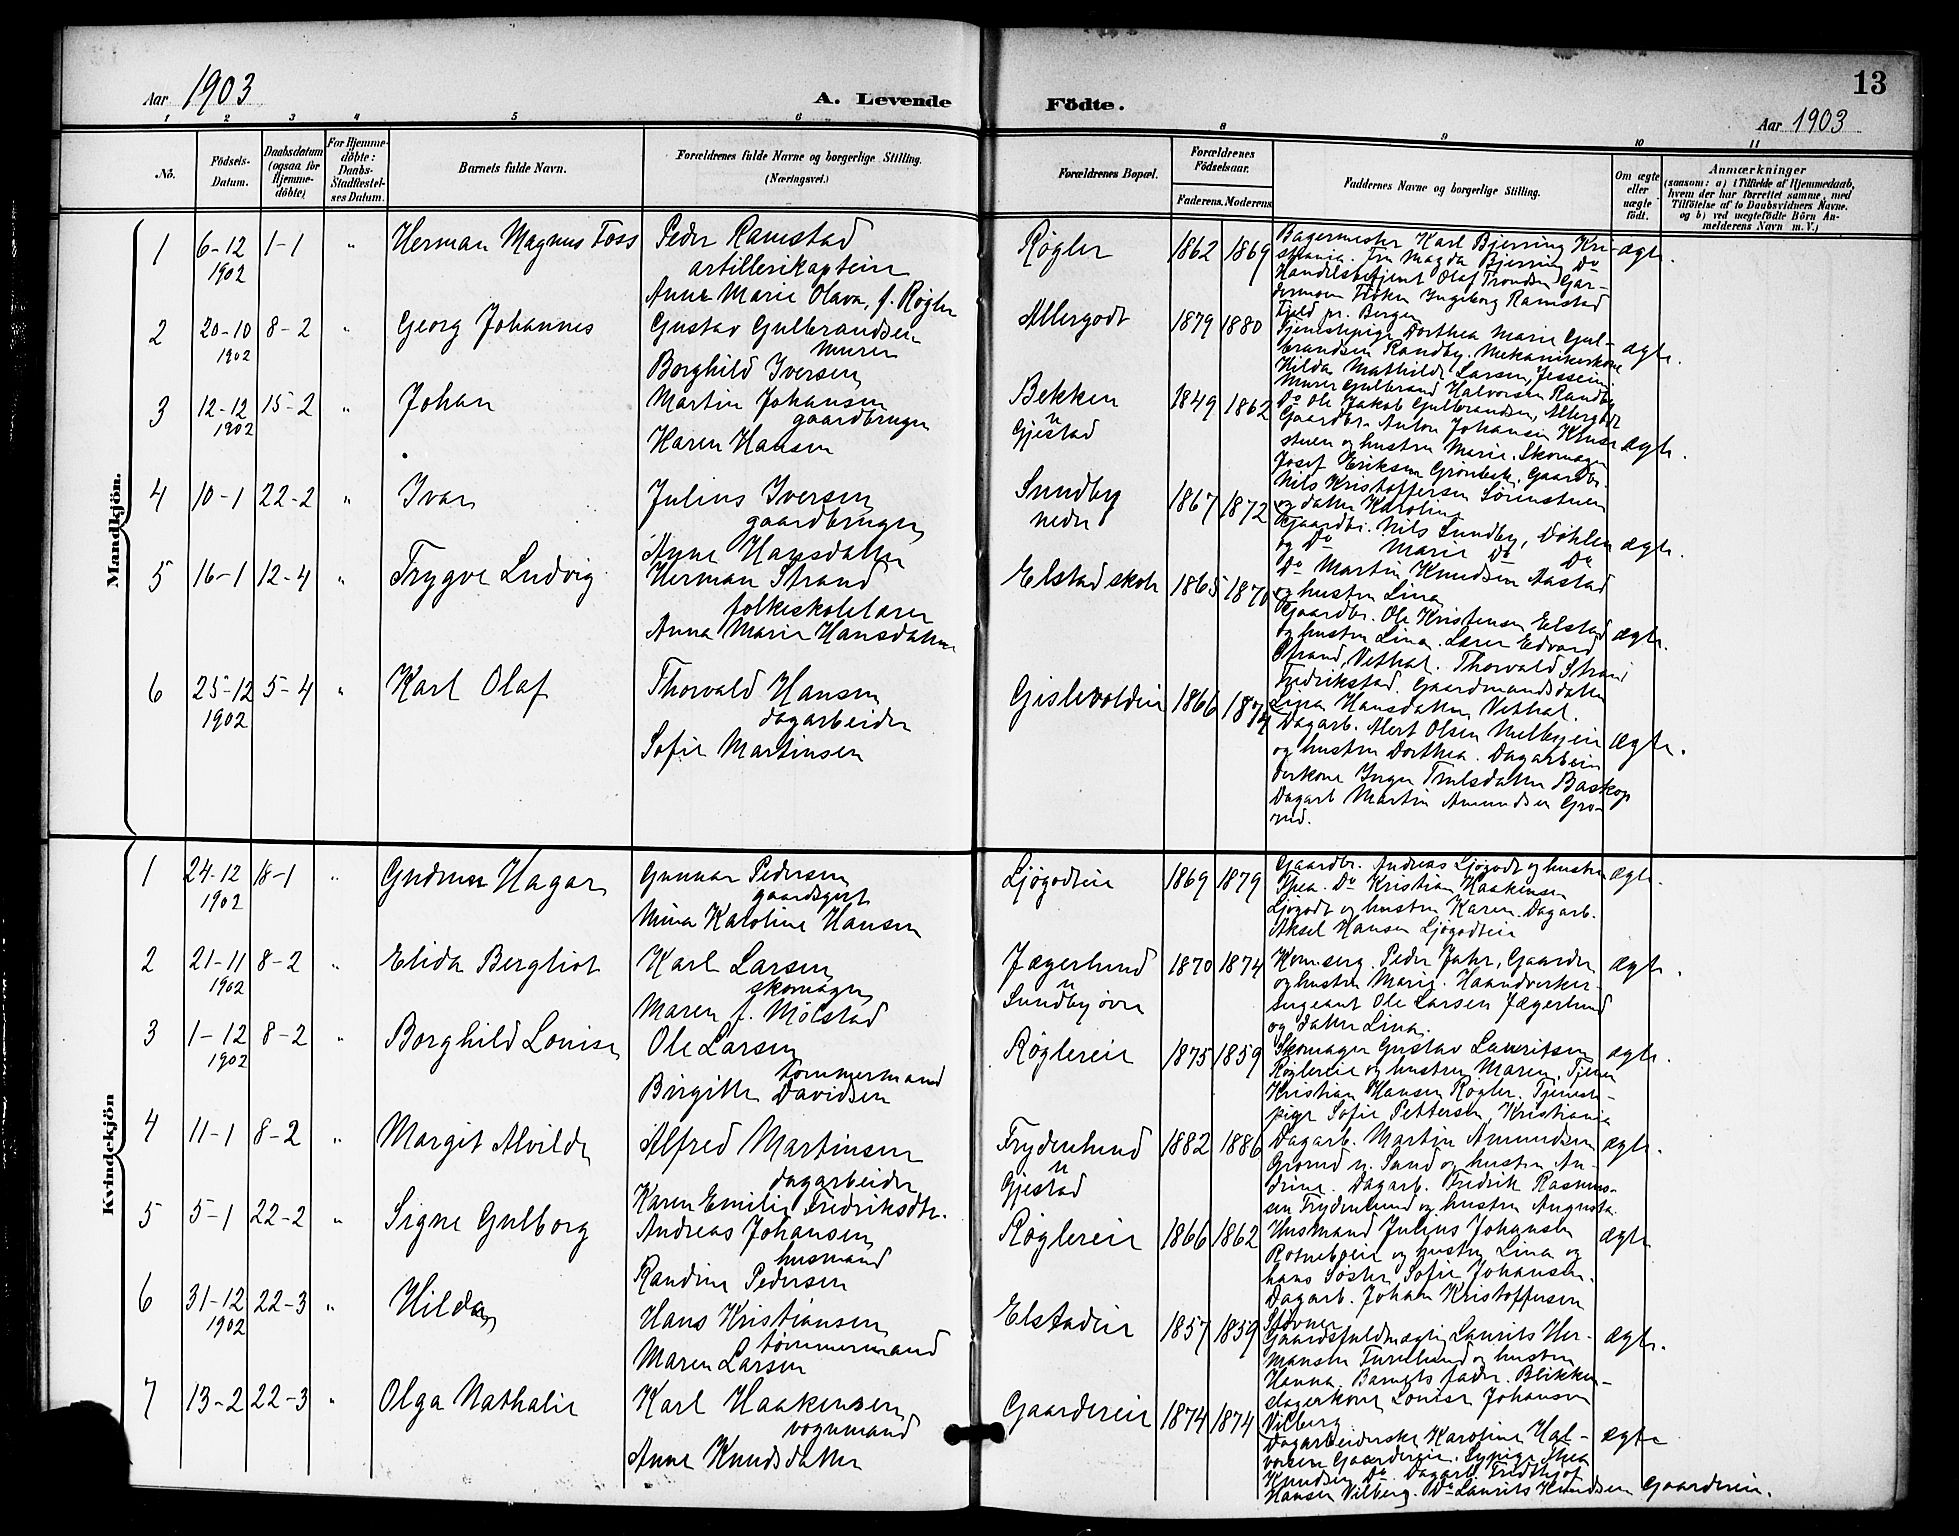 Aar 1903
A. Levende Födte.
13
Aar 1903
1 2 3 4 5 6 8 9 10 11
No.
Födsels-
Datum.
Daabsdatum
(ogsaa for
Hjemme-
døbte)
For Hjemme-
døbte:
Daabs-
Stadfæstel-
ses Datum.
Barnets fulde Navn.
Forældrenes fulde Navne og borgerlige Stilling.
(Næringsvei.)
Forældrenes Bopæl.
Forældrenes
Födselsaar.
Faderens. Moderens.
Faddernes Navne og borgerlige Stilling.
Om ægte
eller
uægte
født.
Anmærkninger
(saasom: a) i Tilfælde af Hjemmedaab,
hvem der har forrettet samme, med
Tilföielse af to Daabsvidners Navne.
og b) ved uægtefödte Börn An-
melderens Navn m. V.)
Mandkjön.
1 6-12 1902 1-1 " Herman Magnus Foss
Peder Ramstad
artillerikaptein
Anne Marie Olava, f. Røgler
Røgler 1862 1869
Bagermester Karl Bjerring Kri-
stiania. Fru Magda Bjerring Do
Handelsbetjent Olaf Trondsen Gar-
dermoen Frøken Ingeborg Ramstad
Fjeld pr. Bergen
ægte.
2 20-10 1902 8-2 " Georg Johannes
Gustav Gulbrandsen
murer
Borghild Iversen
Allergodt 1879 1880
Tjenestepige Dorthea Marie Gul-
brandsen Randby. Mekanikerkone
Hilda Mathilde Larsen, Jessheim
Murer Gulbrand Halvorsen Randby
Do Ole Jakob Gulbrandsen, Allergodt
ægte.
3 12-12 1902 15-2 " Johan
Martin Johansen
gaardbruger
Karen Hansen
Bekken
u
Gjestad
1849 1862
Gaardbr. Anton Johansen Kruse
stuen og hustru Marie. Skomager
Josef Eriksen Grønbek, Gaardbr.
Nils Kristoffersen Sørenstuen
og datter Karoline
ægte.
4 10-1 22-2 " Ivar
Julius Iversen
gaardbruger
Anne Hansdatter
Sundby
nedre
1867 1872
Gaardbr. Nils Sundby, Dahlen
og Do Marie Do Do
Do Martin Knudsen Aastad
og hustru Lina
ægte.
5 16-1 12-4 " Trygve Ludvig
Herman Strand
folkeskolelærer
Anna Marie Hansdatter
Elstad skole 1865 1870
Gaardbr. Ole Kristensen Elstad
og hustru Lina. Lærer Edvard
Strand, Vethal. Thorvald Strand
Fredrikstad. Gaardmandsdatter
Lina Hansdatter Vethal.
ægte.
6 25-12 1902 5-4 " Karl Olaf
Thorvald Hansen
dagarbeider
Sofie Martinsen
Gislevoldeie 1866 1874
Dagarb. Mert Olsen Melbyeie
og hustru Dorthea. Dagarbei-
derkone Inger Trulsdatter Baskop
Dagarb Martin Amundsen Gro-
nd.
ægte.
Kvindekjön
1 24-12 1902 18-1 " Gudrun Hagar
Gunnar Pedersen
gaardsgut
Mina Karoline Hansen
Ljøgodteie 1869 1879
Gaardbr. Andreas Ljøgodt og hustru
Thea. Do Kristian Haakensen
Ljøgodt og hustru Karen. Dagarb.
Aksel Hansen Ljøgodteie
ægte.
2 21-11 1902 8-2 " Elida Bergliot
Karl Larsen
skomager
Maren f. Mølstad
Jægerlund
u
Sundby øvre
1870 1874
Korn.serg. Peder Jahr, Gaarder
og hustru Marie. Haandverker-
sergeant Ole Larsen Jægerlund
og datter Lina.
ægte.
3 1-12 1902 8-2 " Borghild Louise
Ole Larsen
tømmermand
Birgitte Davidsen
Røglereie 1875 1859
Skomager Gustav Lauritsen
Røglereie og hustru Maren. Tjener
Kristian Hansen Røgler. Tjeneste-
pige Sofie Pettersen, Kristiania
ægte.
4 11-1 8-2 " Margit Alvilde
Alfred Martinsen
dagarbeider
Karen Emilie Fredriksdtr.
Frydenlund
u
Gjestad
1882 1886
Dagarb. Martin Amundsen
Grorud u. Sand og hustru An-
drine. Dagarb. Fredrik Rasmus-
sen Frydenlund og hustru Augusta.
ægte.
5 5-1 22-2 " Signe Gulborg
Andreas Johansen
husmand
Randine Pedersen
Røglereie 1866 1862
Husmand Julius Johansen
Rotnebøeie og hustru Lina og
hans søster Sofie Johansen.
Dagarb. Johan Kristoffersen
Støvner
ægte
6 31-12 1902 22-3 " Hilda
Hans Kristiansen
tømmermand
Maren Larsen
Elstadeie 1857 1859
Gaardsfuldmægtig Laurits Her-
mansen Furulund og hustru
Hanna. Barnets fader. Blikken-
slagerkone Louise Johansen
Vilberg
ægte.
7 13-2 22-3 " Olga Nathalie
Karl Haakensen
vognmand
Anne Knudsdatter
Gaardereie 1874 1874
Dagarbeiderske Karoline Hal-
vorsen Gaardereie. Sypige Thea
Knudsen Do. Dagarb. Fredthjof
Hansen Vilberg. Do Laurits Knudsen Gaardereie.
ægte